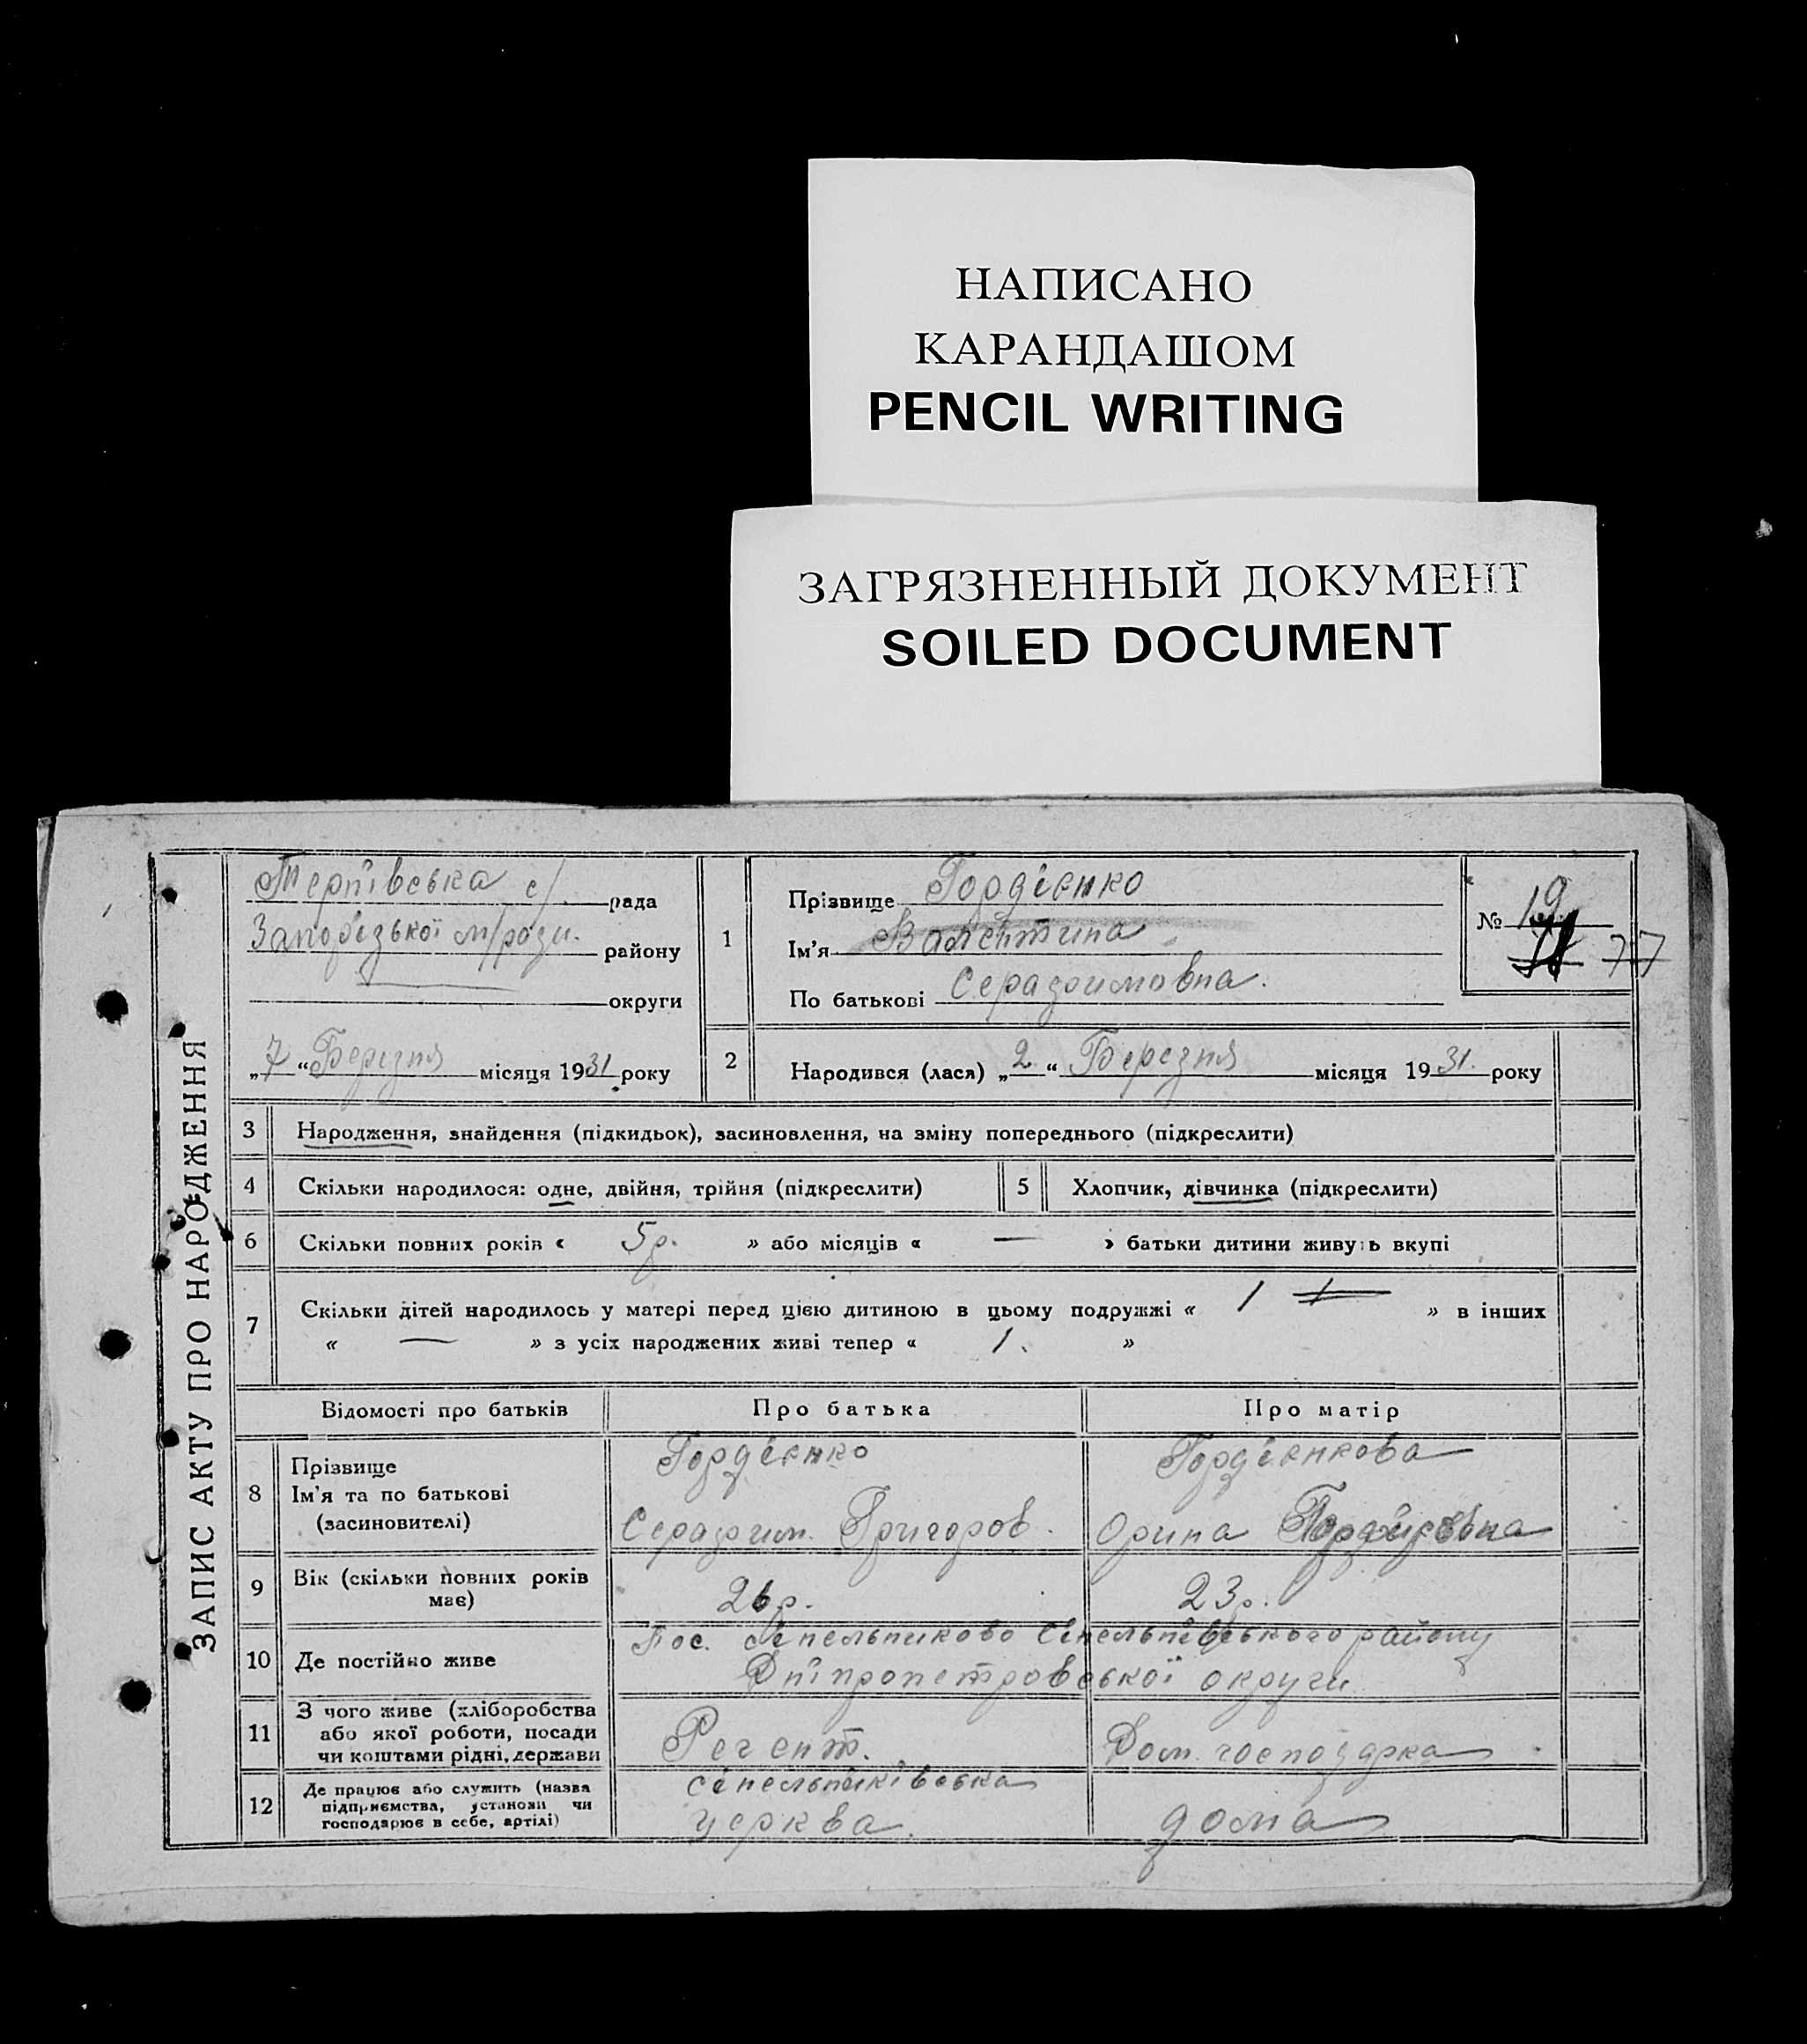 НАПИСАНО
КАРАНДАШОМ
PENCIL WRITING
ЗАГРЯЗНЕННЫЙ ДОКУМЕНТ
SOILED DOCUMENT
ЗАПИС АКТУ ПРО НАРОДЖЕННЯ
Терпівська с/ рада
Запорізької м/ради. району
округи
„7“ Березня місяця 1931 року
1
Прізвище Гордієнко
Ім'я Валентина
По батькові Серафимовна.
№ 19
77
2 Народився (лася) „2“ Березня місяця 1931. року
3 Народження, знайдення (підкидьок), засиновлення, на зміну попереднього (підкреслити)
4 Скільки народилося: одне, двійня, трійня (підкреслити) 5 Хлопчик, дівчинка (підкреслити)
6 Скільки повних років « 5р. » або місяців « — » батьки дитини живуть вкупі
7 Скільки дітей народилось у матері перед цією дитиною в цьому подружжі « 1 » в інших
« — » з усіх народжених живі тепер « 1. »
Відомості про батьків Про батька Про матір
8 Прізвище Гордієнко Гордієнкова
Ім'я та по батькові
(засиновителі) Серафим. Григоров. Орина
9 Вік (скільки повних років має) 26р. 23р.
10 Де постійно живе Пос. Сінельниково Сінельнівського району
Дніпропетровської округи
11 З чого живе (хліборобства
або якої роботи, посади
чи коштами рідні, держави Регент. Дом. господарка
12 Де працює або служить (назва
підприємства, установи чи
господарює в себе, артілі) Сінельниківська
церква. дома